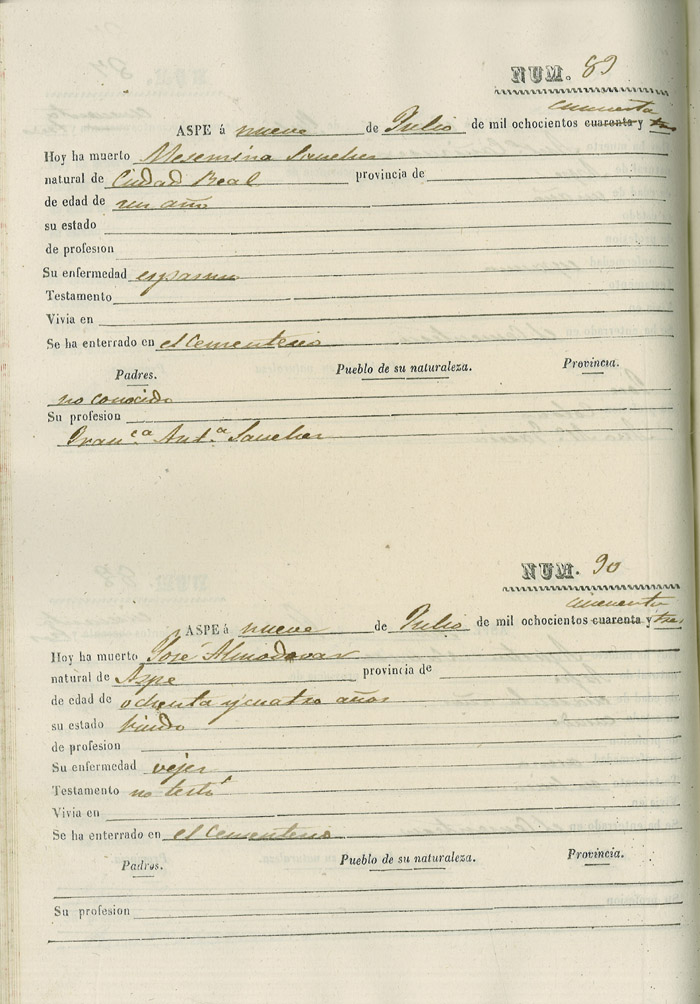 NUM. 89
cincuenta
ASPE á nueve de Julio de mil ochocientos cuarenta y tres
Hoy ha muerto Sanchez
natural de Ciudad Real provincia de
de edad de un año
su estado
de profesion
Su enfermedad espasmo
Testamento
Vivia en
Se ha enterrado en el Cementerio
Padres. Pueblo de su naturaleza. Provincia.
no conocido
Su profesion
Fran.ca Ant.a Sanchez
NUM. 90
cincuenta
ASPE á nueve de Julio de mil ochocientos cuarenta y tres
Hoy ha muerto José Almodovar
natural de Aspe provincia de
de edad de ochenta y cuatro años
su estado Viudo
de profesion
Su enfermedad vejez
Testamento no testó
Vivia en
Se ha enterrado en el Cementerio
Padres. Pueblo de su naturaleza. Provincia.
Su profesion